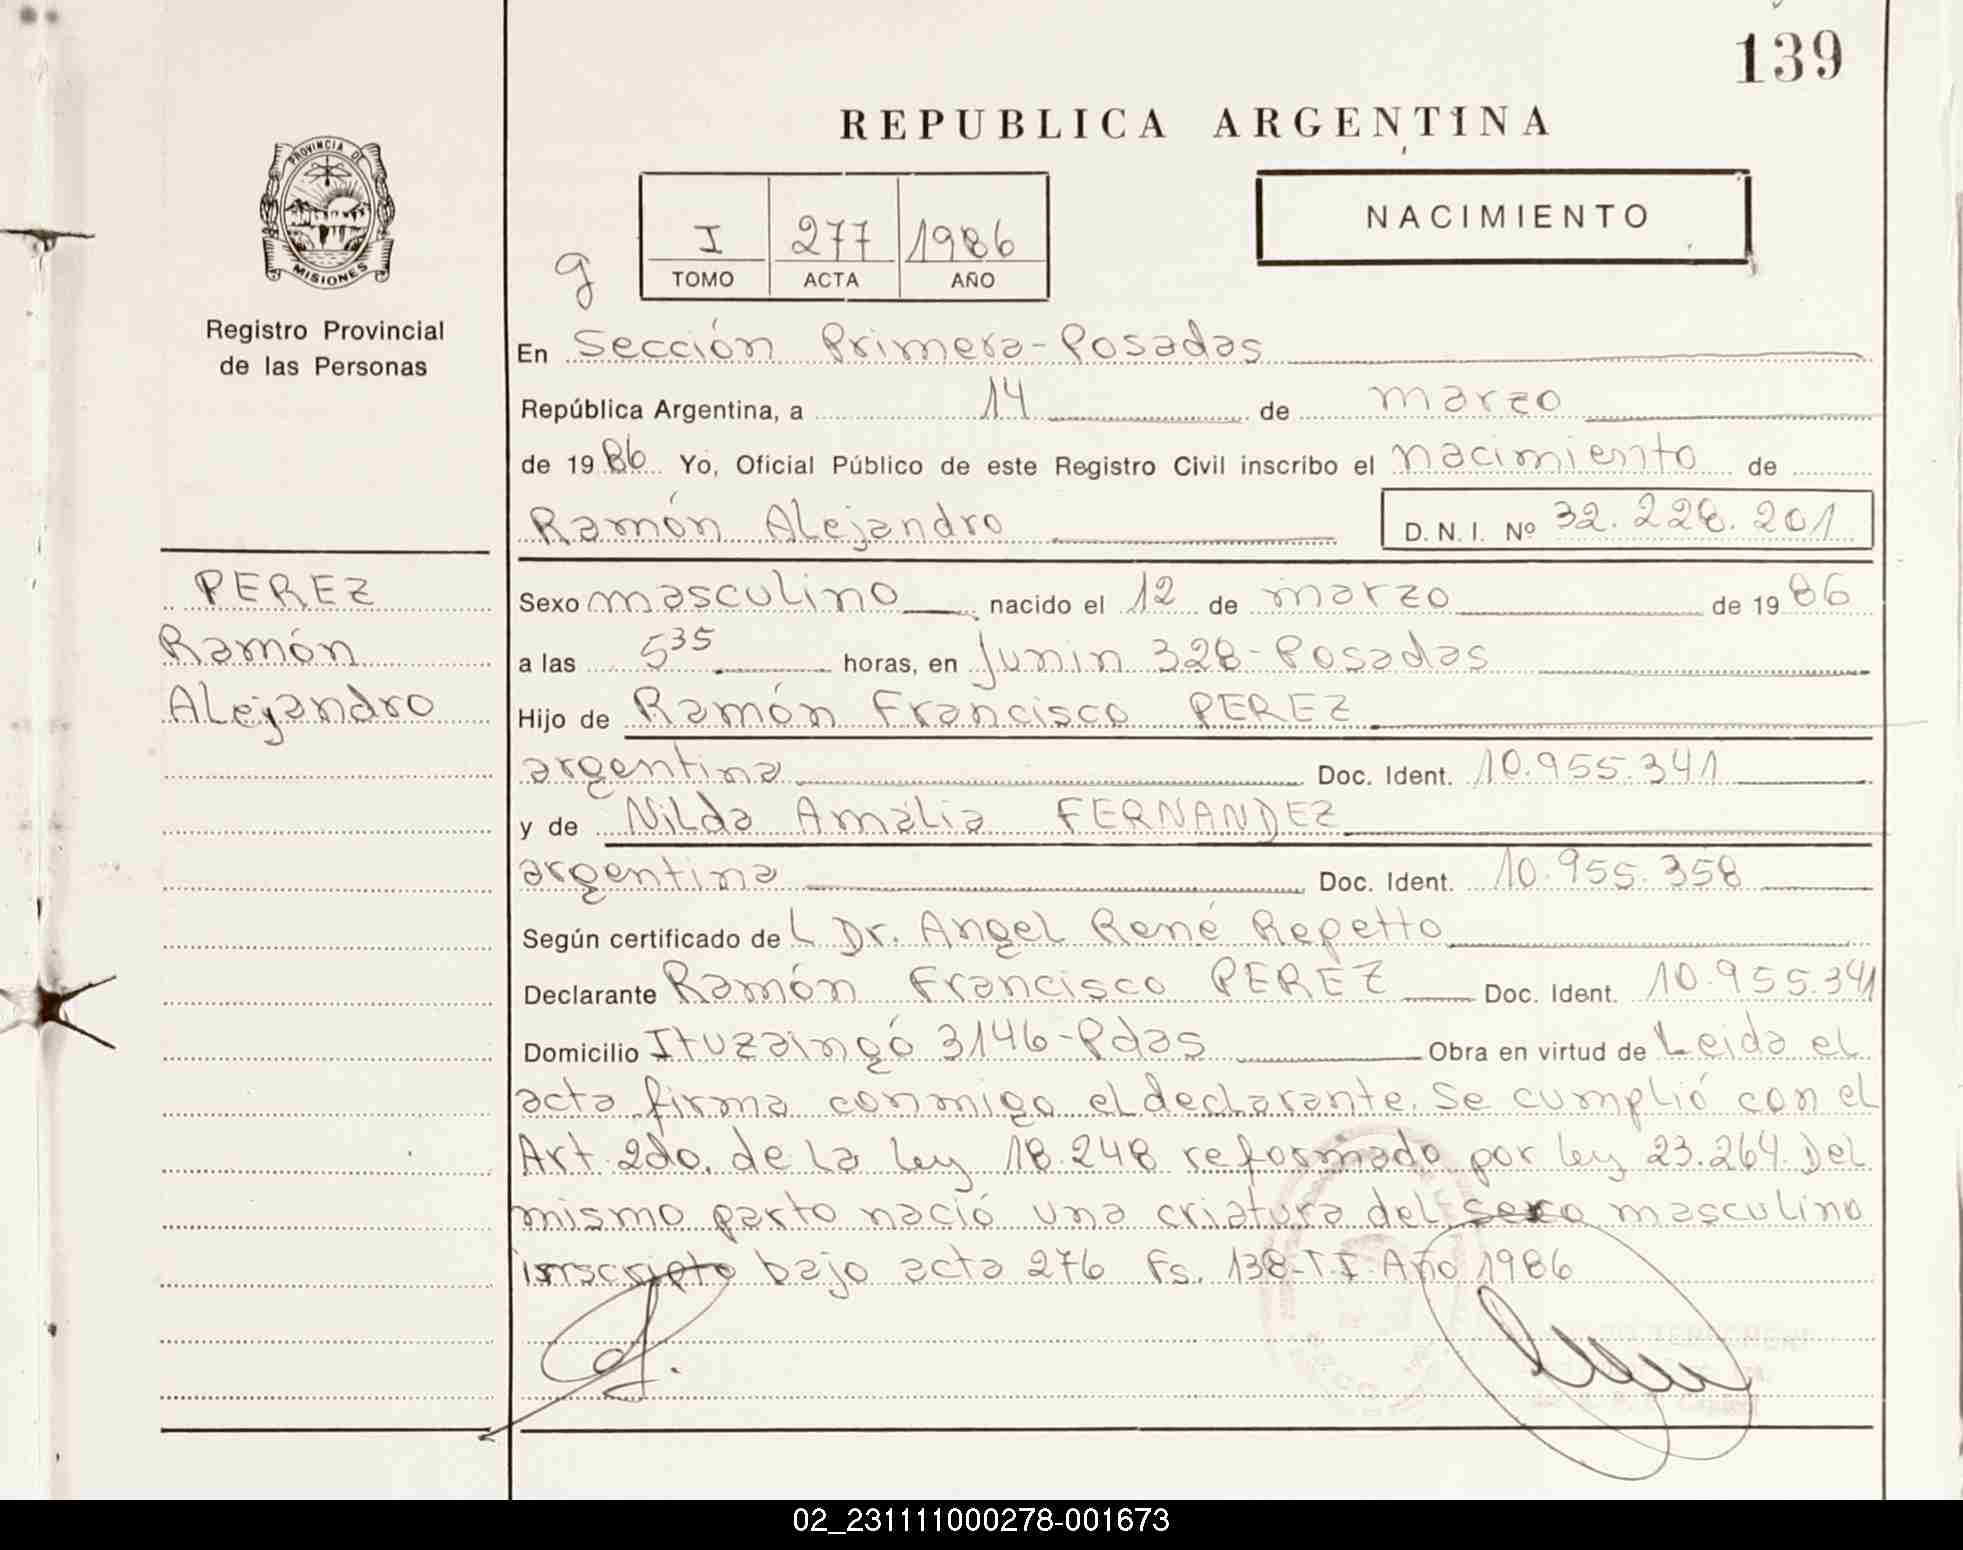 139
REPUBLICA ARGENTINA
PROVINCIA DE
MISIONES
Registro Provincial
de las Personas
I 277 1986
TOMO ACTA AÑO
NACIMIENTO
g
En Sección Primera-Posadas
República Argentina, a 14 de marzo
de 1986 Yo, Oficial Público de este Registro Civil inscribo el nacimiento de
Ramón Alejandro D. N. I. Nº 32.228.201
PEREZ
Ramón
Alejandro
Sexo masculino nacido el 12 de marzo de 1986
a las 5 35 horas, en Junin 328-Posadas
Hijo de Ramón Francisco PEREZ
argentina Doc. Ident. 10.955.341
y de Nilda Amalia FERNANDEZ
argentina Doc. Ident. 10.955.358
Según certificado de L Dr. Angel René Repetto
Declarante Ramón Francisco PEREZ Doc. Ident. 10.955.341
Domicilio Ituzaingó 3146-Pdas Obra en virtud de Leida el
acta firma conmigo el declarante. Se cumplió con el
Art. 2do. de la ley 18.248 reformado por ley 23.264. Del
mismo parto nació una criatura del sexo masculino
inscripto bajo acta 276 Fs. 138-T.I. Año 1986
02_231111000278-001673